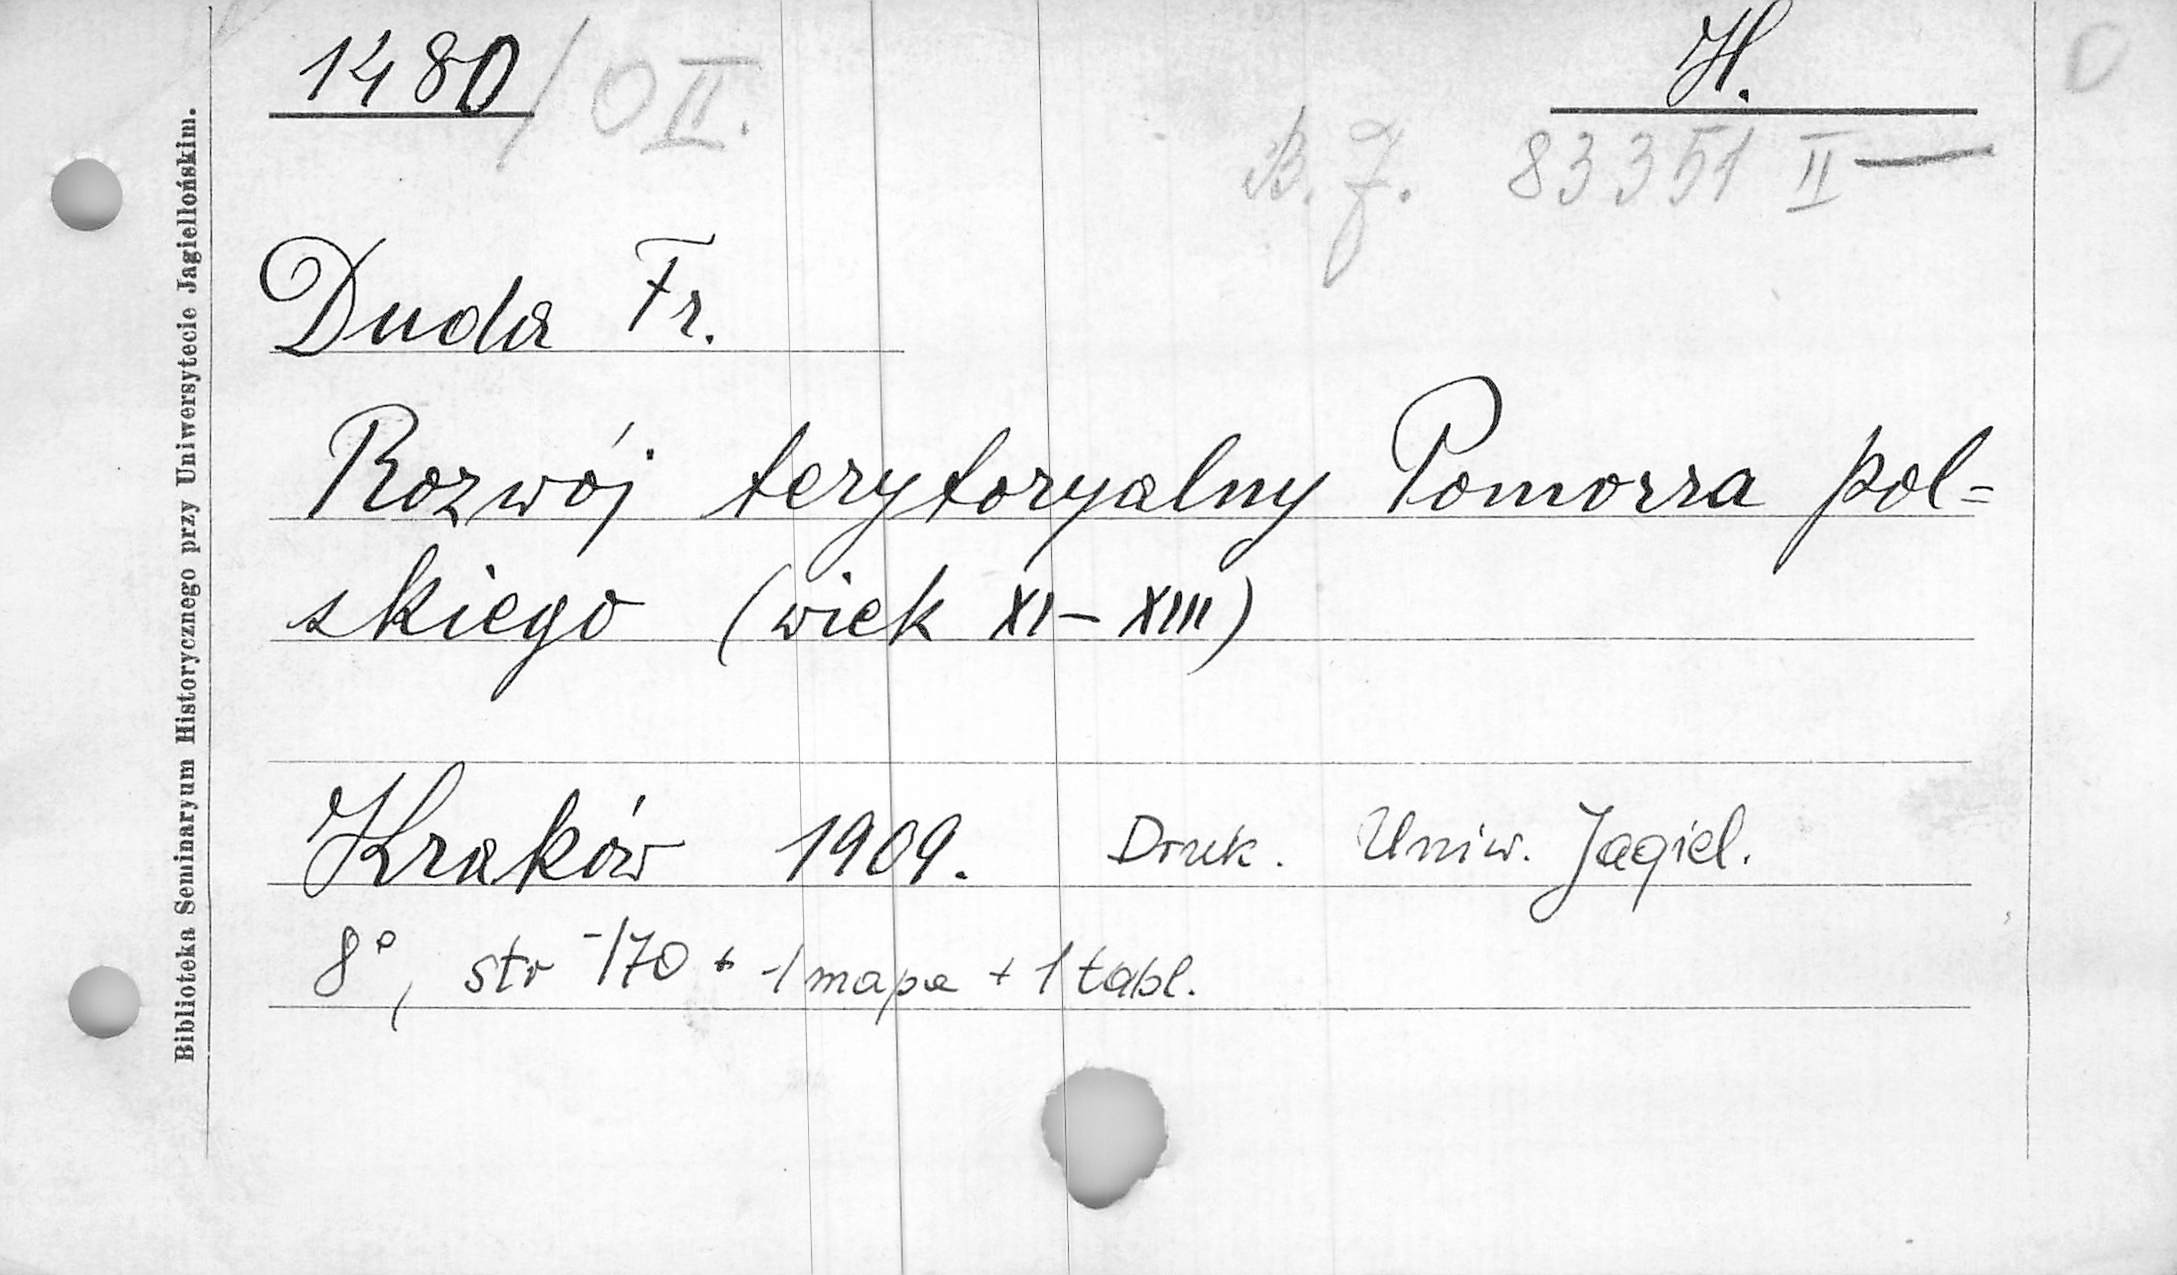 1480/O II. H.
B. J. 83351 II —
Duda Fr.
Rozwój terytoryalny Pomorza pol=
skiego (wiek XI–XIII)
Kraków 1909. Druk. Uniw. Jagiel.
8°, str 170 + 1 mapa + 1 tabl.
Biblioteka Seminaryum Historycznego przy Uniwersytecie Jagiellońskim.